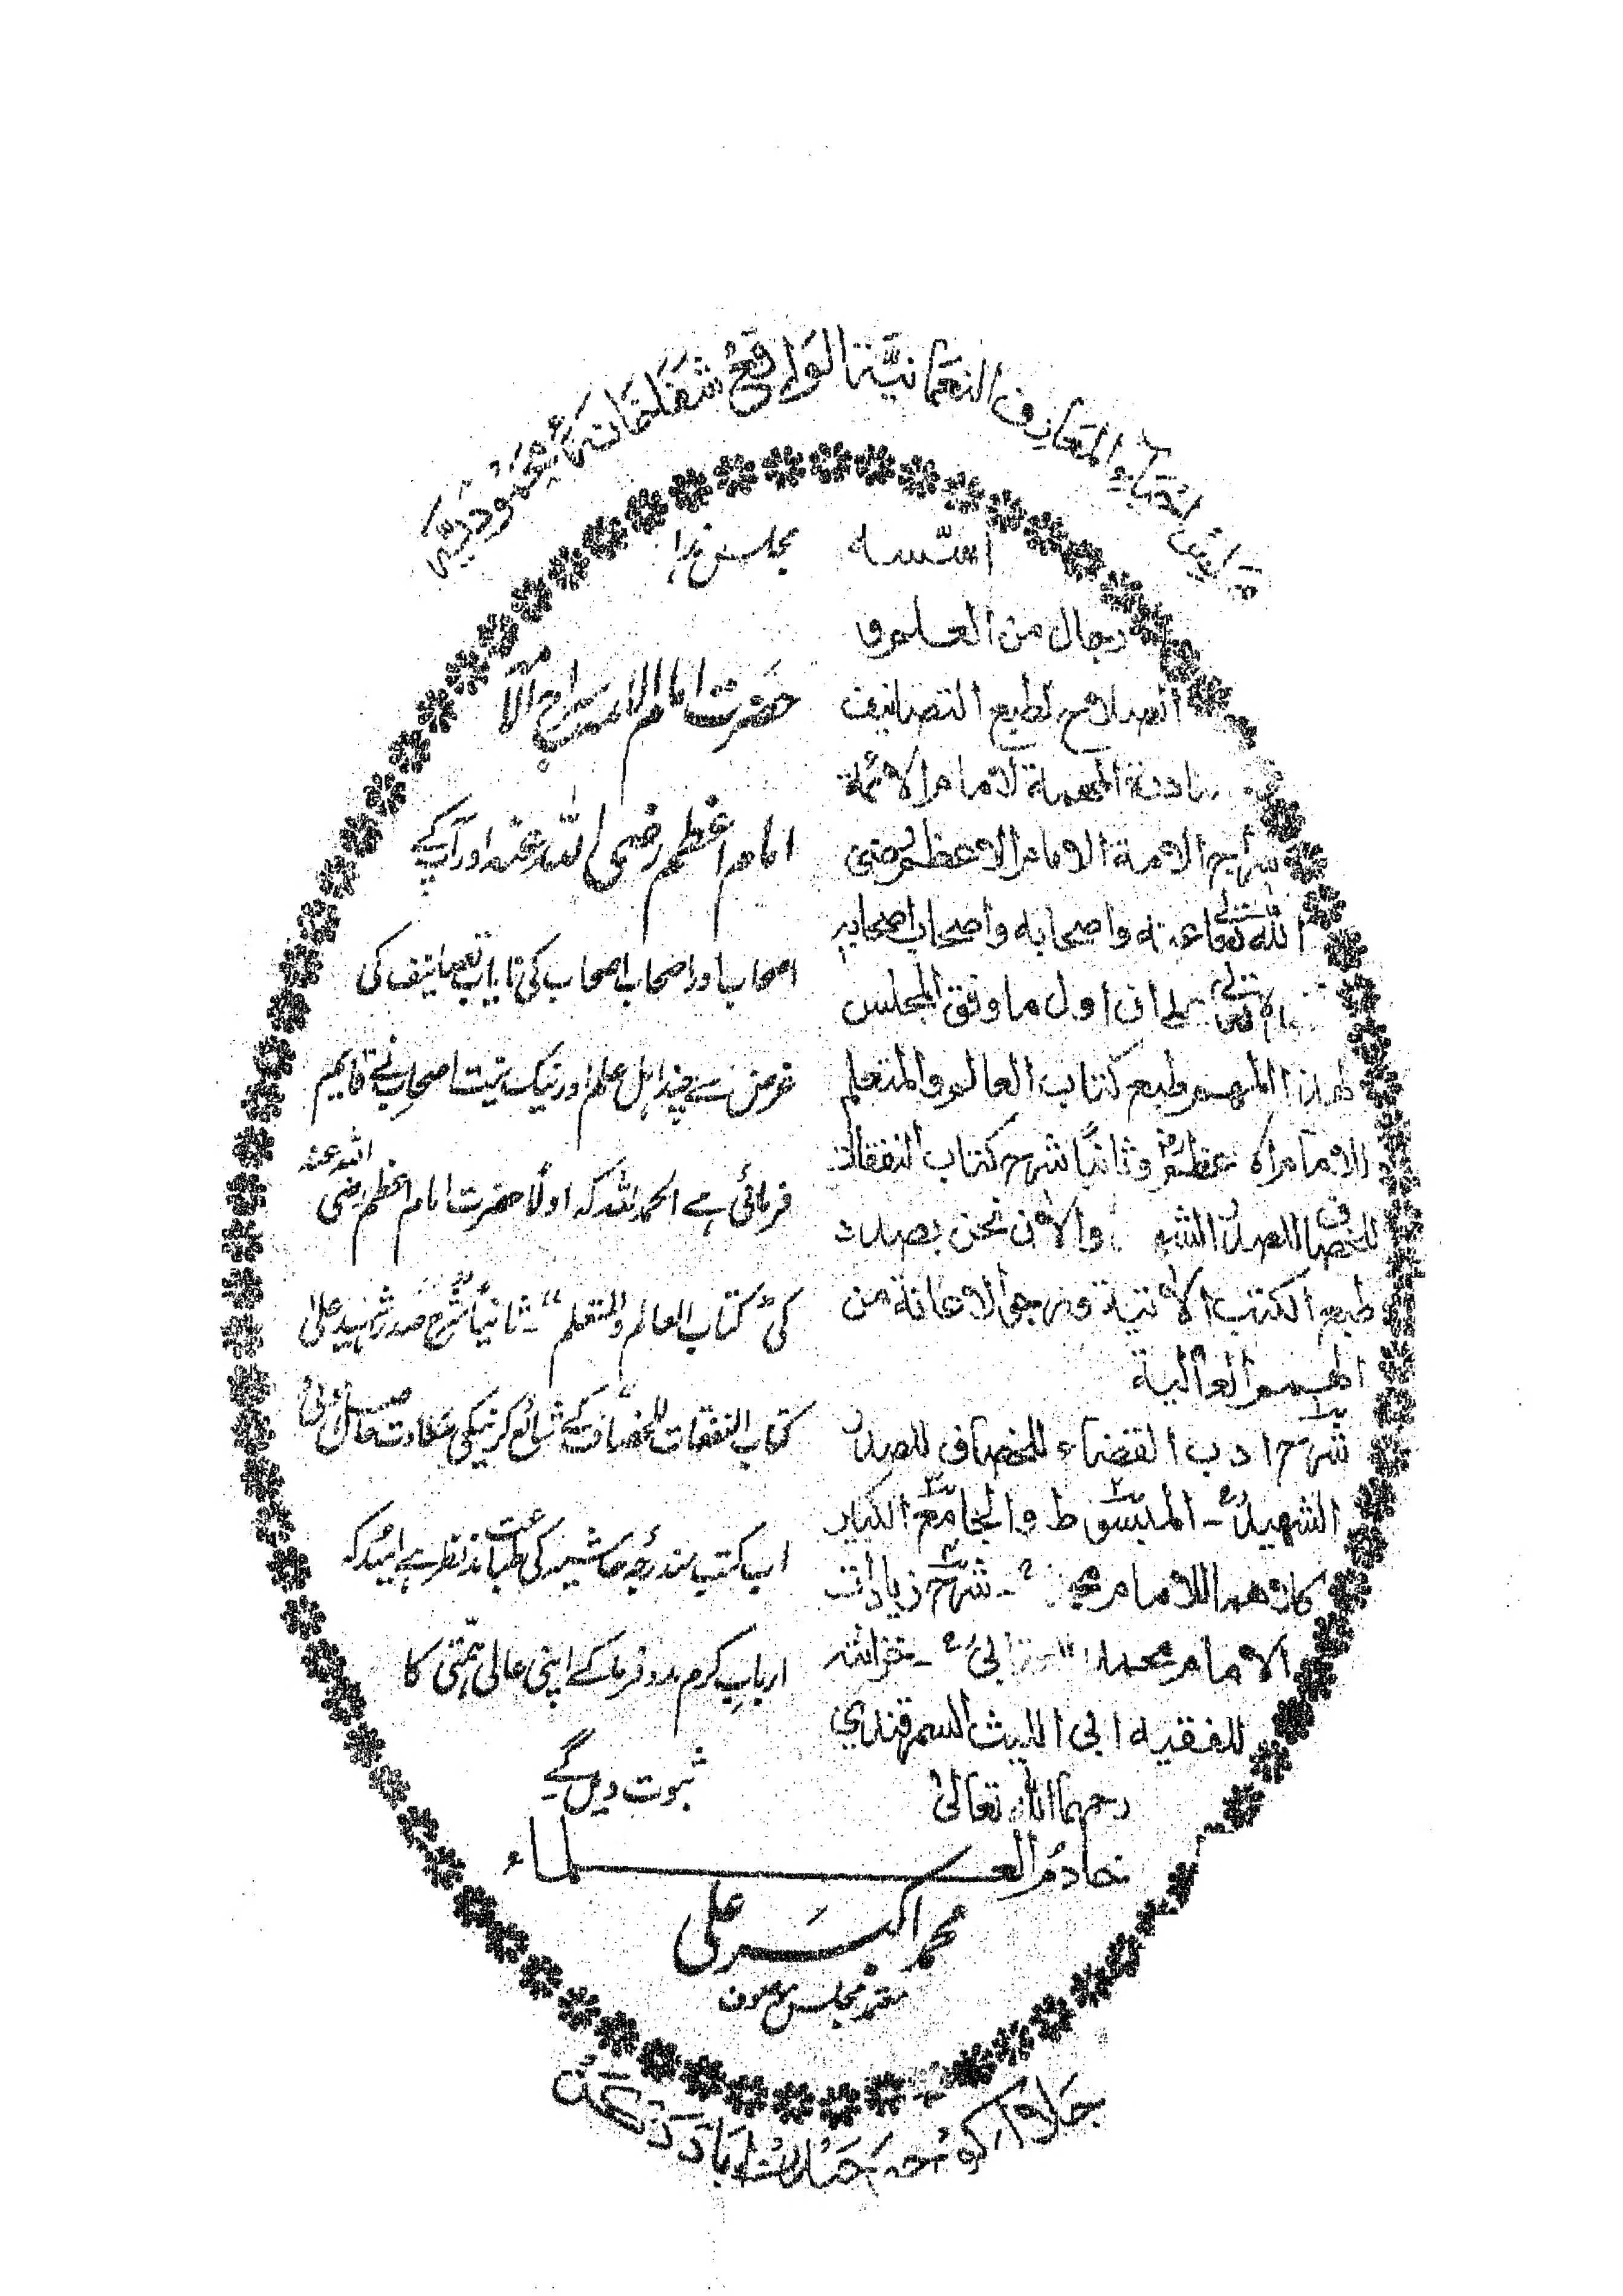 احياء المعارف النعمانية الواقع شفاخانه
اسّسه
رجال من العلم و
الصلاح لطبع التصانيف
النادرة المهمة لامام الائمة
سراج الامة الامام الاعظم رضى
الله تعالى عنه واصحابه واصحاب اصحابه
ان اول ما وفق المجلس
لهذا المهم طبع كتاب العالم والمتعلم
للامام الاعظم وثانيًا شرح كتاب النفقات
للخصاف للصدر والآن نحن بصدد
طبع الكتب الآتية ونرجو الاعانة من
الهمم العالية
شرح ادب القضاء للخصاف للصدر
الشهيد ۔ المبسوط والجامع الكبير
كلاهما للامام محمد ۔ شرح زيادات
الامام محمد ۔ خزانة
للفقيه ابى الليث السمرقندي
رحمهما الله تعالىٰ
مجلس ہذا
حضرت امام الائمہ سراج الامہ
امام اعظم رضی اللہ عنہ اور آپ کے
اصحاب اور اصحاب اصحاب کی نایاب تصانیف کی
غرض سے چند اہل علم اور نیک نیت اصحاب نے قایم
فرمائی ہے الحمد للہ کہ اولاً حضرت امام اعظم رضی اللہ عنہ
کی "کتاب العالم والمتعلم" ۔ ثانیاً شرح صدر شہید علیٰ
کتاب النفقات للخصاف کے شائع کرنیکی سعادت حاصل
اب کتب مندرجہ حاشیہ کی طباعت مد نظر ہے امید کہ
ارباب کرم مدد فرما کے اپنی عالی ہمتی کا
ثبوت دیں گے
خادم العلماء
محمد اکبر علی
معتمد مجلس موصوف
جلال کوچہ حیدرآباد دکن